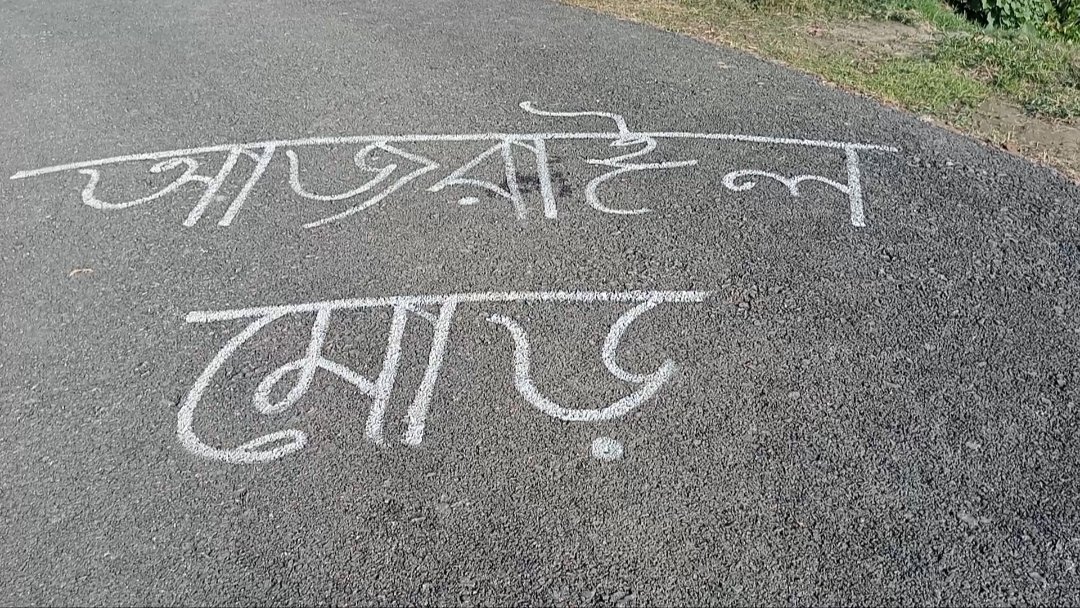 আজরাইল
মোড়